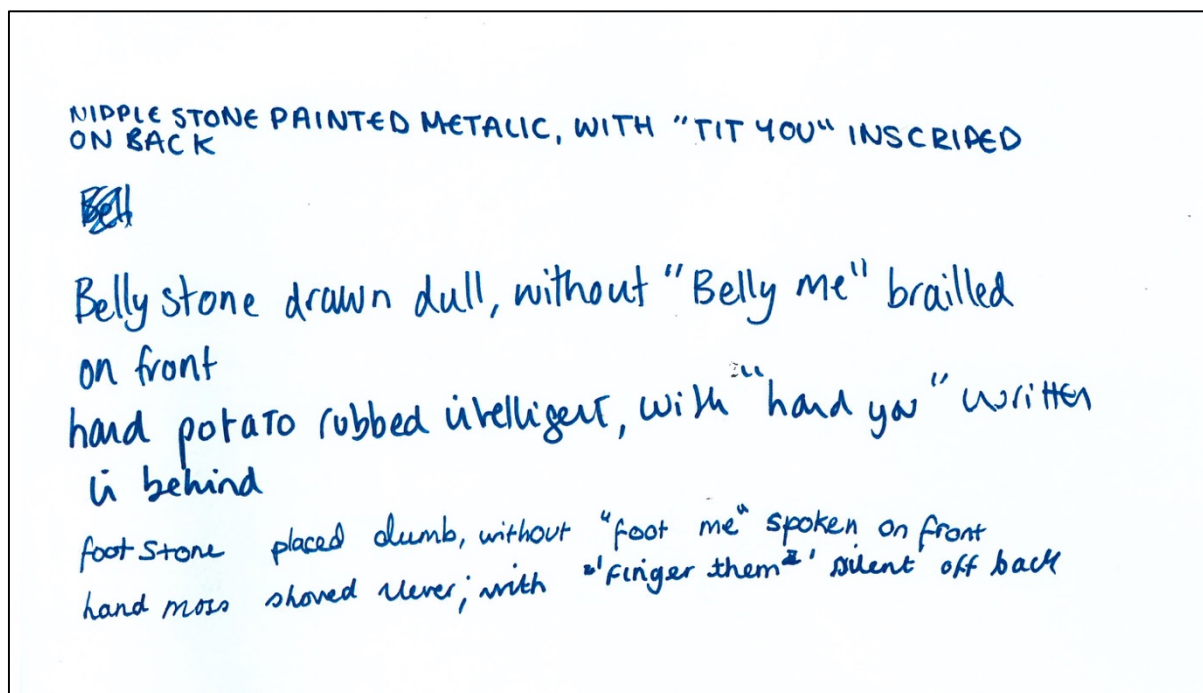 NIPPLE STONE PAINTED METALIC, WITH "TIT YOU" INSCRIPED
ON BACK
Belly stone drawn dull, without "Belly me" brailled
on front
hand potato rubbed intelligent, with "hand you" written
in behind
foot stone placed dumb, without "foot me" spoken on front
hand moss shoved clever; with "finger them" silent off back